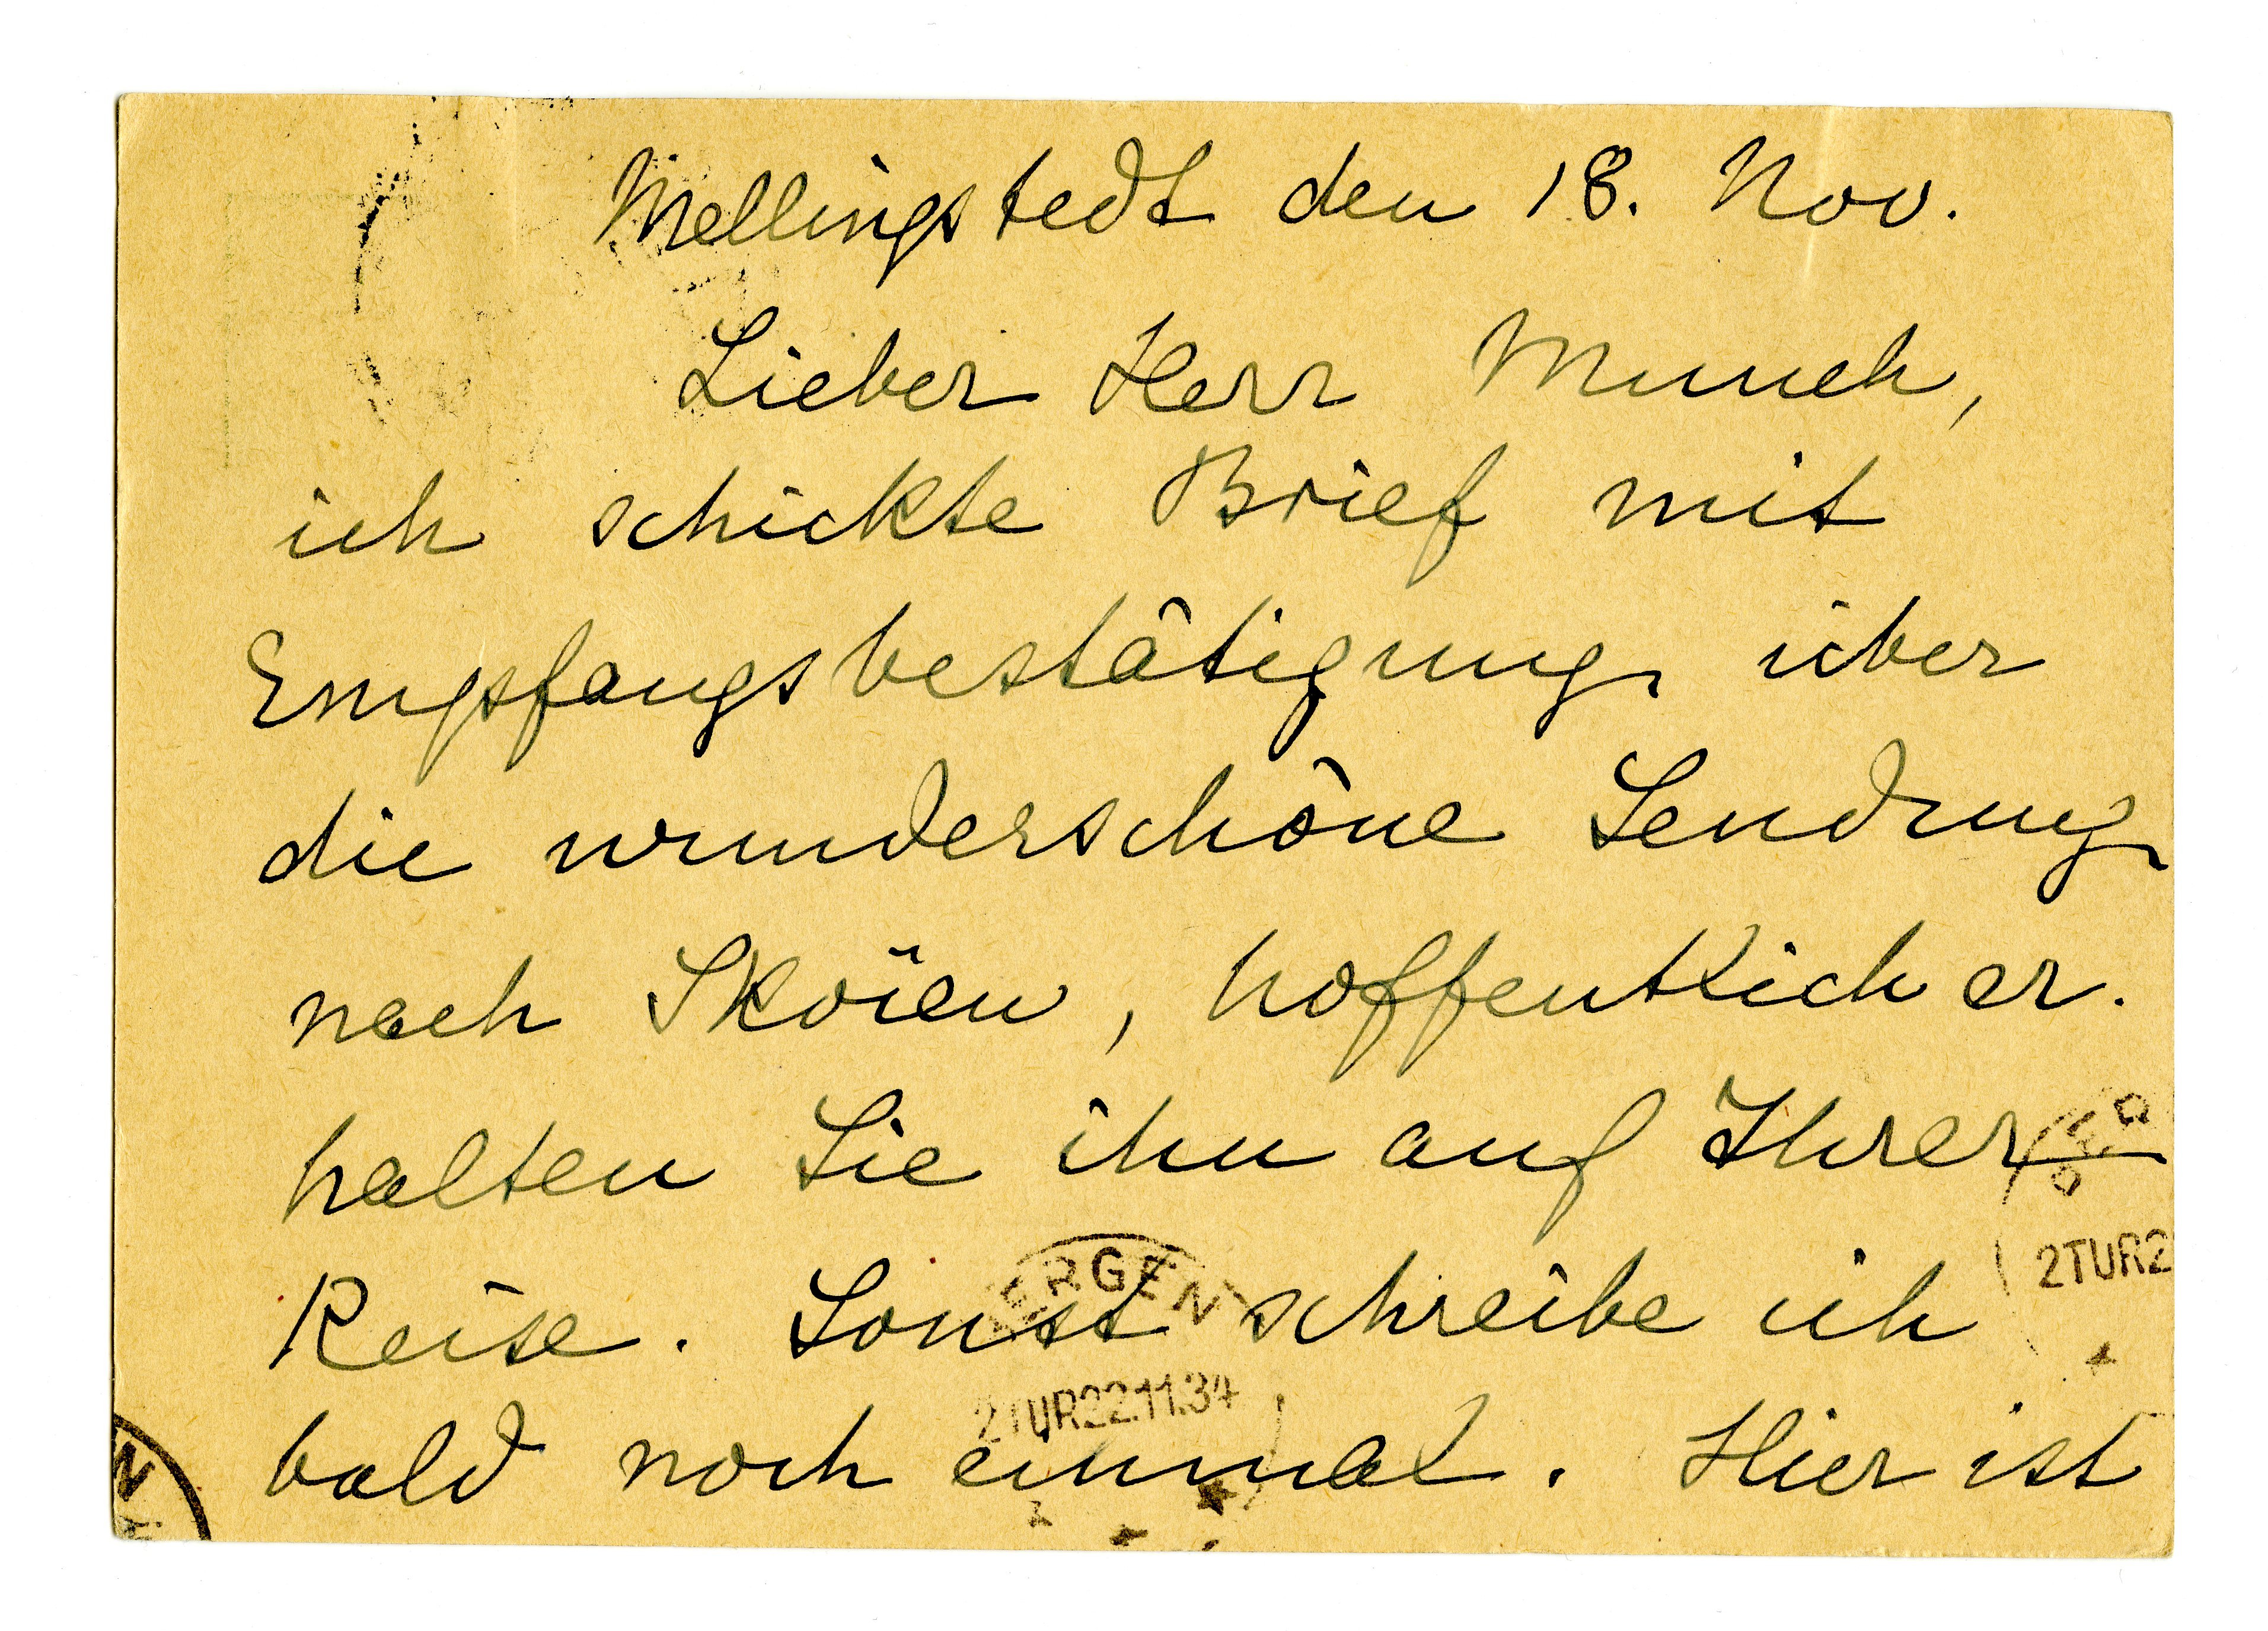 Mellingstedt den 18. Nov.
Lieber Herr Munch,
ich schickte Brief mit
Empfangsbestätigung über
die wunderschöne Sendung
nach Sköien, hoffentlich er-
halten Sie ihn auf Ihrer
Reise. Sonst schreibe ich
bald noch einmal. Hier ist
ERGEN
2TUR22.11.34
2TUR2
N